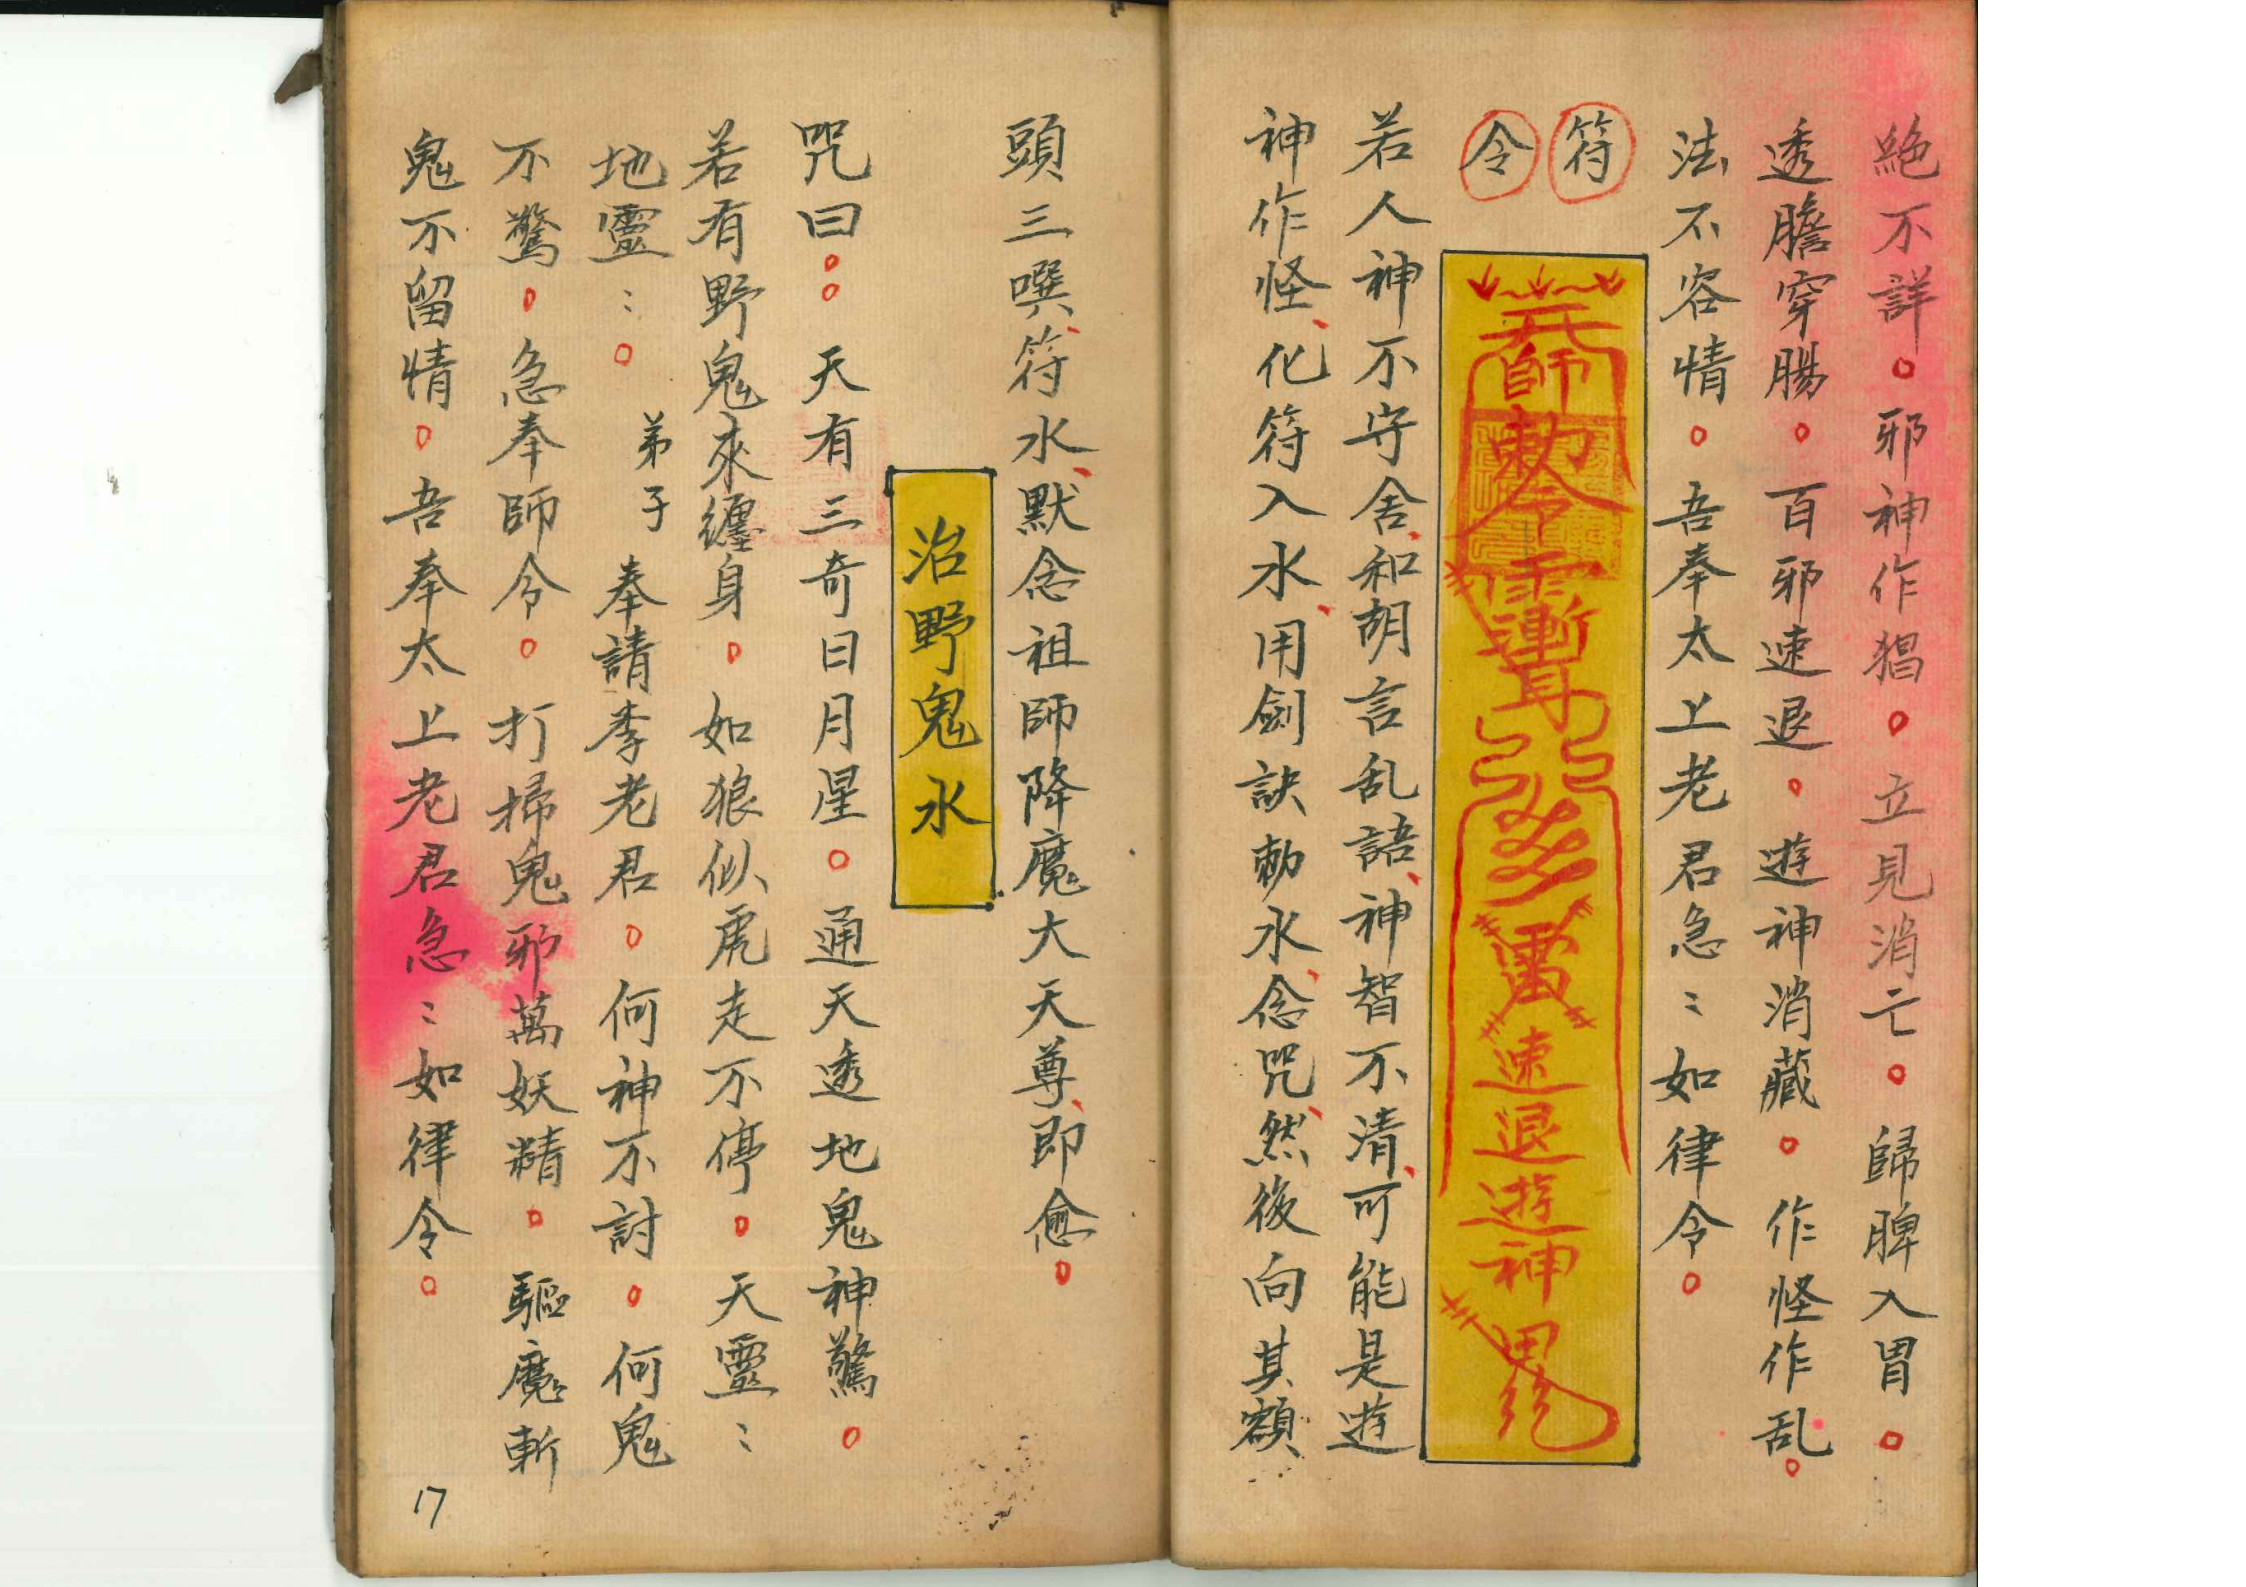 絶不詳。邪神作猖。立見消亡。歸脾入胃。
透膽穿腸。百邪速退。遊神消藏。作怪作乱。
法不容情。吾奉太上老君急:如律令。
符
令
天師
敕令
雷
速退遊神
若人神不守舍、和胡言乱語、神智不清、可能是遊
神作怪、化符入水、用劍訣勅水、念咒、然後向其額
頭三噀符水、默念祖師降魔大天尊、即愈。
治野鬼水
咒曰:天有三奇日月星。通天透地鬼神驚。
若有野鬼來纏身。如狼似虎走不停。天靈:
地靈:。弟子奉請李老君。何神不討。何鬼
不驚。急奉師令。打掃鬼邪萬妖精。驅魔斬
鬼不留情。吾奉太上老君急:如律令。
17